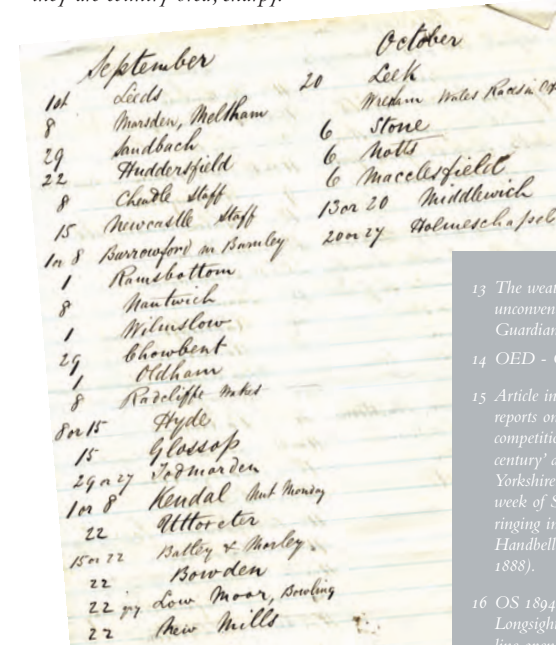 they are country-bred, chappy.
September
1st Leeds
8 Marsden, Meltham
29 Sandbach
22 Huddersfield
8 Cheadle Staff
15 Newcastle Staff
1 or 8 Barrowford nr Burnley
1 Ramsbottom
8 Nantwich
1 Wilmslow
29 Chowbent
1 Oldham
8 Radcliffe Wakes
8 or 15 Hyde
15 Glossop
29 or 27 Todmorden
1 or 8 Kendal Nut Monday
22 Uttoxeter
15 or 22 Batley & Morley
22 Bowden
22 Low Moor, Bowling
22 New Mills
October
20 Leek
Wrexham Wales Races in
6 Stone
6 Notts
6 Macclesfield
13 or 20 Middlewich
20 or 27 Holmeschapel
13 The
unconven
Guardian
14 OED -
15 Article in
reports on
competitio
century' a
Yorkshire
week of S
ringing in
Handbell
1888).
16 OS 1894
Longsigh